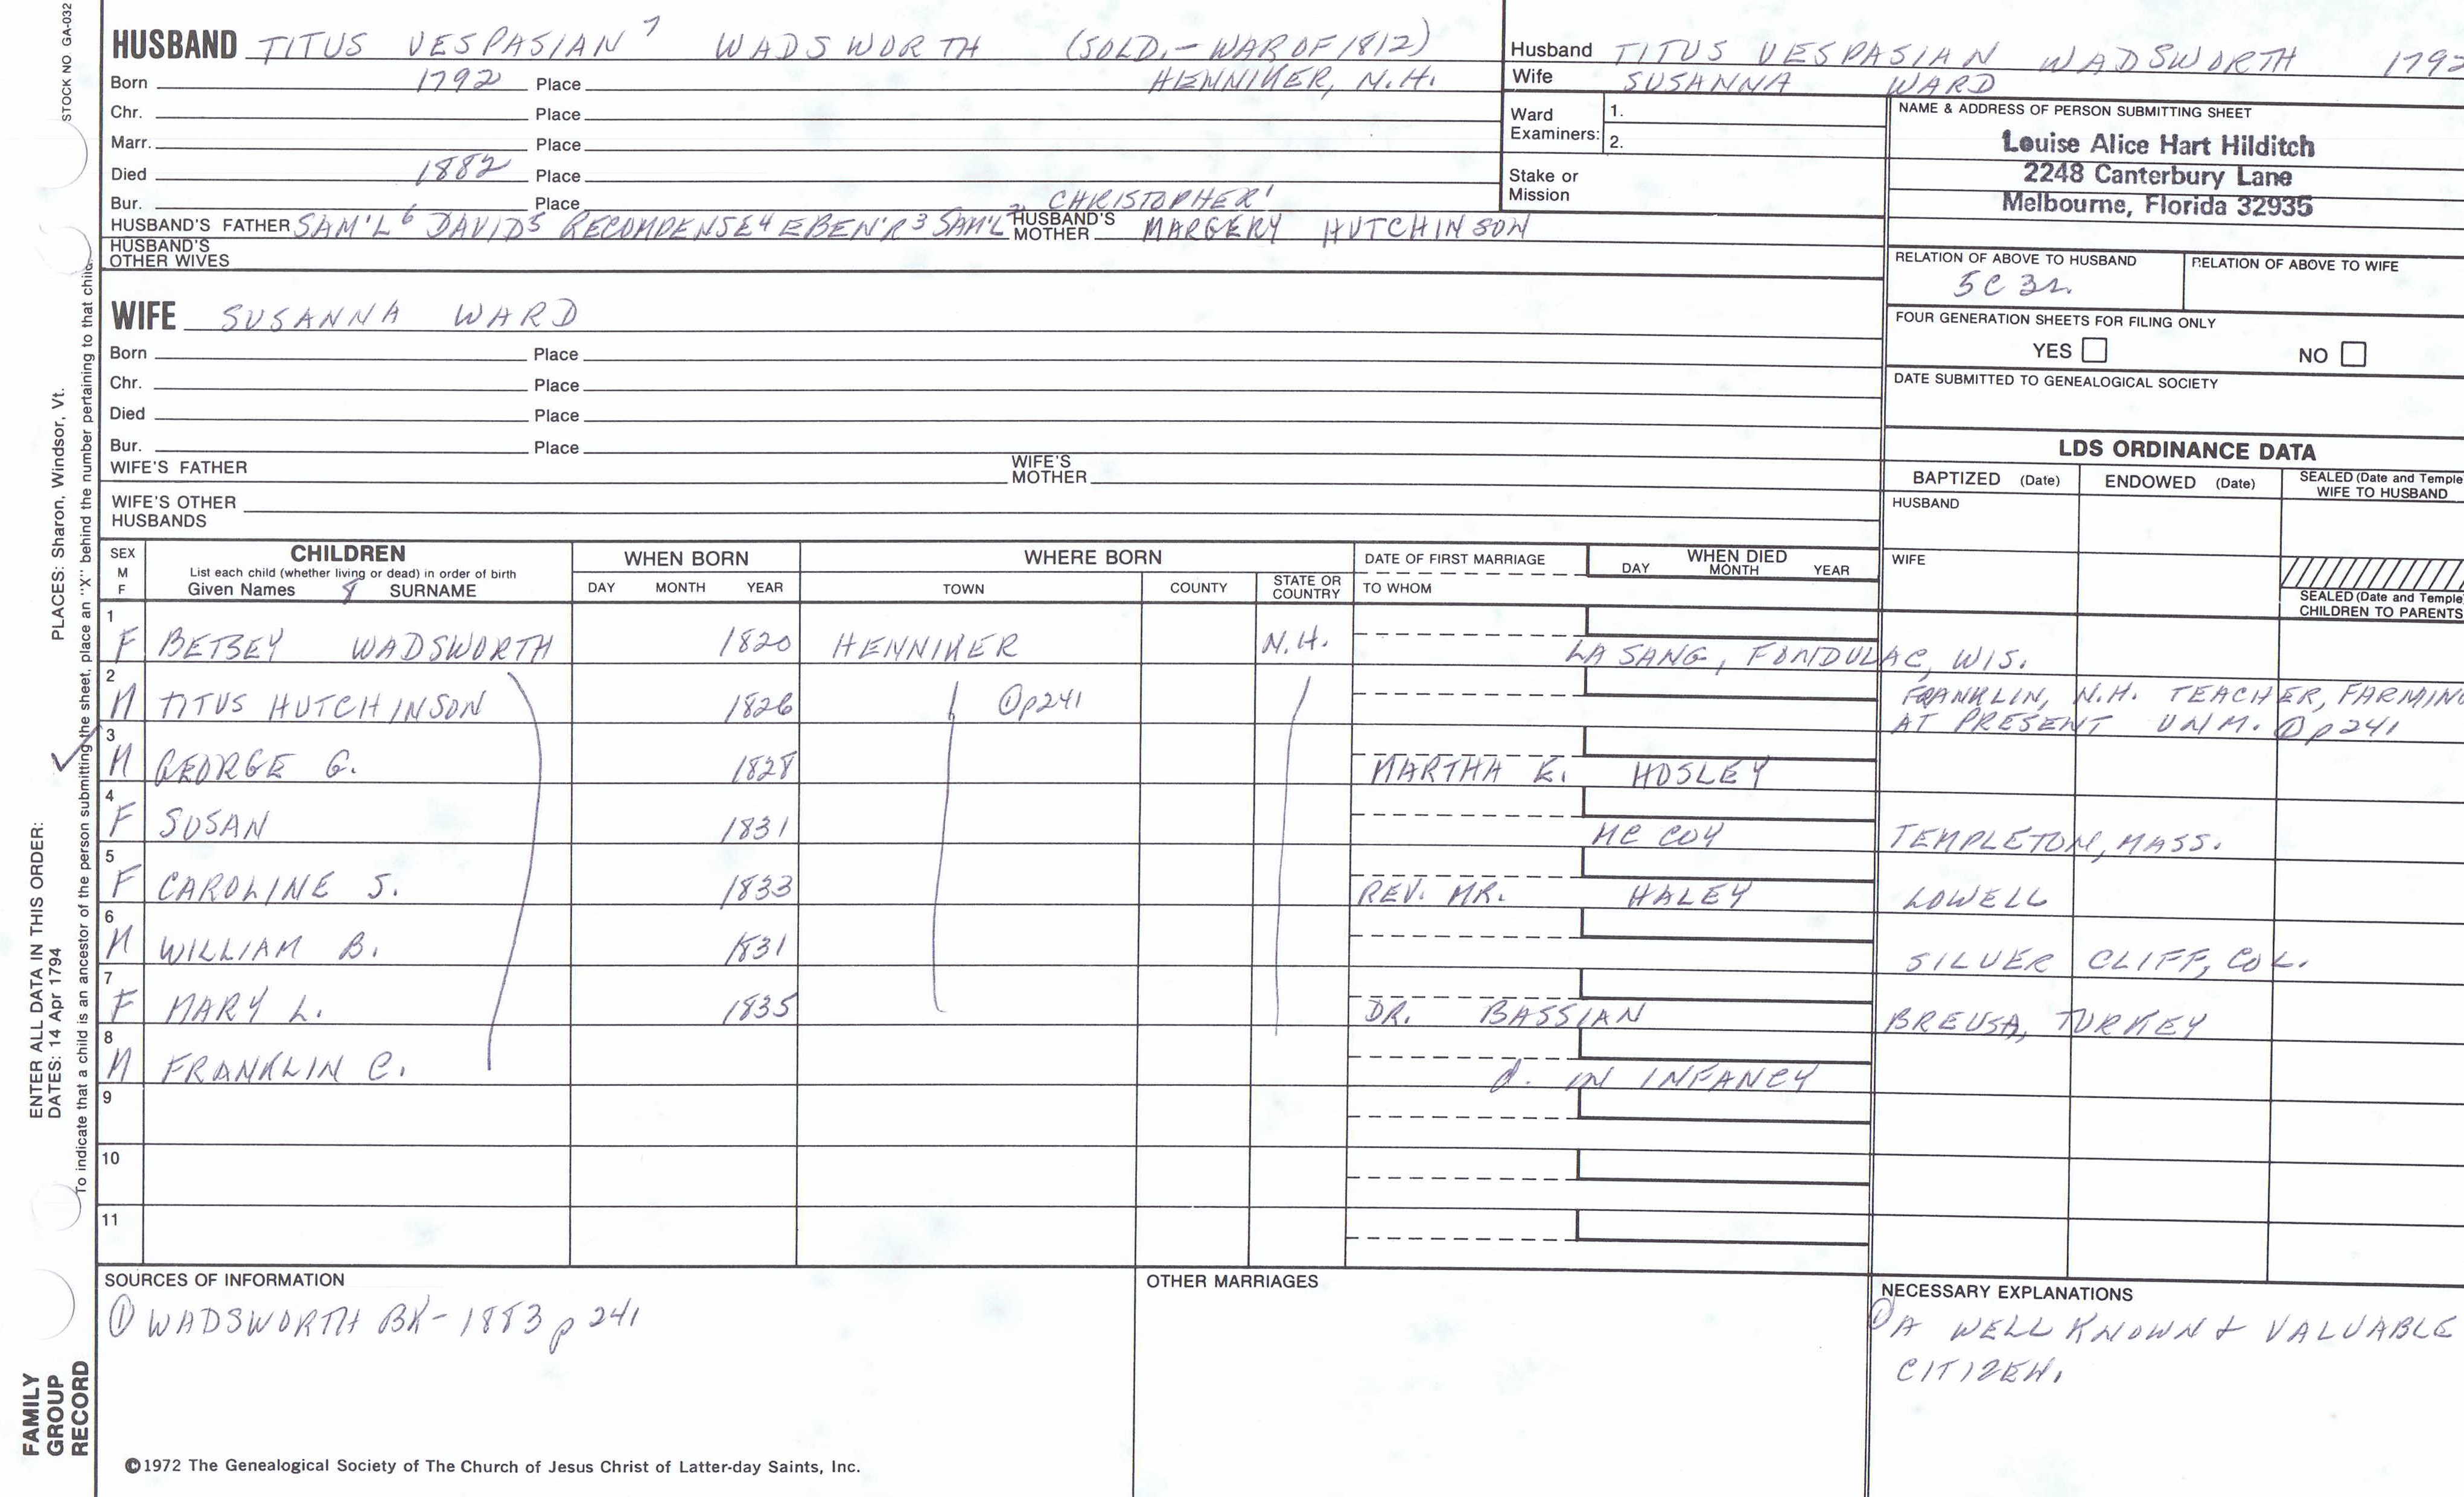 STOCK NO GA-032
HUSBAND TITUS VESPASIAN 7 WADSWORTH (SOLD.-WAR OF 1812)
Born 1792 Place HENNIKER, N.H.
Chr. Place
Marr. Place
Died 1882 Place
Bur. Place CHRISTOPHER 1
HUSBAND'S FATHER SAM'L 6 DAVID 5 RECOMPENSE 4 EBEN'R 3 SAM'L 2 HUSBAND'S MOTHER MARGERY HUTCHINSON
HUSBAND'S OTHER WIVES
Husband TITUS VESPASIAN WADSWORTH 1792
Wife SUSANNA WARD
Ward Examiners: 1.
2.
Stake or Mission
NAME & ADDRESS OF PERSON SUBMITTING SHEET
Louise Alice Hart Hilditch
2248 Canterbury Lane
Melbourne, Florida 32935
RELATION OF ABOVE TO HUSBAND RELATION OF ABOVE TO WIFE
5C 3r.
FOUR GENERATION SHEETS FOR FILING ONLY
YES NO
DATE SUBMITTED TO GENEALOGICAL SOCIETY
WIFE SUSANNA WARD
Born Place
Chr. Place
Died Place
Bur. Place
WIFE'S FATHER WIFE'S MOTHER
WIFE'S OTHER HUSBANDS
LDS ORDINANCE DATA
BAPTIZED (Date) ENDOWED (Date) SEALED (Date and Temple
WIFE TO HUSBAND
HUSBAND
WIFE
SEALED (Date and Temple
CHILDREN TO PARENTS
SEX M F CHILDREN WHEN BORN WHERE BORN DATE OF FIRST MARRIAGE WHEN DIED
List each child (whether living or dead) in order of birth
Given Names 8 SURNAME DAY MONTH YEAR TOWN COUNTY STATE OR COUNTRY TO WHOM DAY MONTH YEAR
1 F BETSEY WADSWORTH 1820 HENNIKER N.H. LA SANG, FONDULAC, WIS.
2 M TITUS HUTCHINSON 1826 ① p241 FRANKLIN, N.H. TEACHER, FARMING
AT PRESENT UNM. ① p 241
3 M GEORGE G. 1828 MARTHA E. HOSLEY
4 F SUSAN 1831 MC COY TEMPLETON, MASS.
5 F CAROLINE S. 1833 REV. MR. HALEY LOWELL
6 M WILLIAM B. 1831 SILVER CLIFF, COL.
7 F MARY L. 1835 DR. BASSIAN BREUSA, TURKEY
8 M FRANKLIN C. d. IN INFANCY
9
10
11
SOURCES OF INFORMATION
① WADSWORTH BK-1883 p 241
OTHER MARRIAGES
NECESSARY EXPLANATIONS
① A WELL KNOWN & VALUABLE
CITIZEN.
©1972 The Genealogical Society of The Church of Jesus Christ of Latter-day Saints, Inc.
FAMILY
GROUP
RECORD
ENTER ALL DATA IN THIS ORDER:
DATES: 14 Apr 1794 PLACES: Sharon, Windsor, Vt.
To indicate that a child is an ancestor of the person submitting the sheet, place an "X" behind the number pertaining to that child.